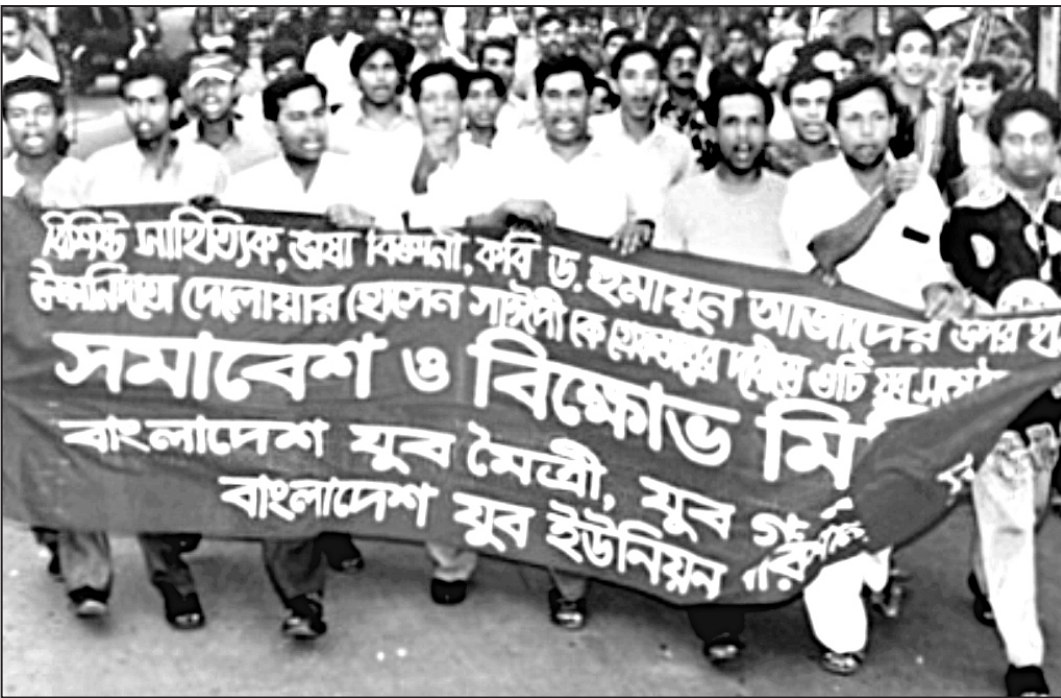 বিশিষ্ট সাহিত্যিক, ভাষা বিজ্ঞানী, কবি ড. হুমায়ুন আজাদের উপর
দেলোয়ার হোসেন সাঈদী কে গ্রেফতারের দাবীতে ৩টি যুব
সমাবেশ ও বিক্ষোভ মি
বাংলাদেশ যুব মৈত্রী, যুব
বাংলাদেশ যুব ইউনিয়ন